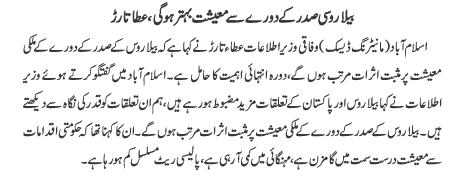 بیلا روسی صدر کے دورے سے معیشت بہتر ہوگی، عطا تارڑ
اسلام آباد (مانیٹرنگ ڈیسک) وفاقی وزیر اطلاعات عطاء تارڑ نے کہا ہے کہ بیلا روس کے صدر کے دورے کے ملکی
معیشت پر مثبت اثرات مرتب ہوں گے، دورہ انتہائی اہمیت کا حامل ہے۔ اسلام آباد میں گفتگو کرتے ہوئے وزیر
اطلاعات نے کہا بیلا روس اور پاکستان کے تعلقات مزید مضبوط ہو رہے ہیں، ہم ان تعلقات کو قدر کی نگاہ سے دیکھتے
ہیں۔ بیلا روس کے صدر کے دورے کے ملکی معیشت پر مثبت اثرات مرتب ہوں گے۔ ان کا کہنا تھا کہ حکومتی اقدامات
سے معیشت درست سمت میں گامزن ہے، مہنگائی میں کمی آرہی ہے، پالیسی ریٹ مسلسل کم ہو رہا ہے۔